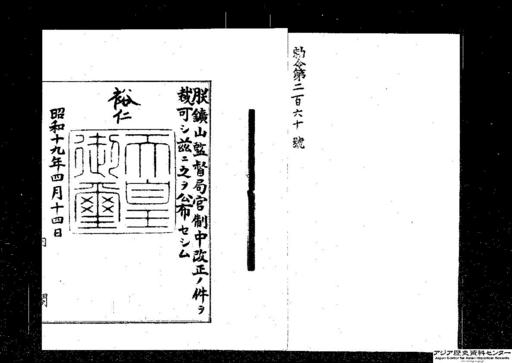 勅令第二百六十號
朕鑛山監督局官制中改正ノ件ヲ
裁可シ茲ニ之ヲ公布セシム
裕仁
天皇
御璽
昭和十九年四月十四日
アジア歴史資料センター
Japan Center for Asian Historical Records